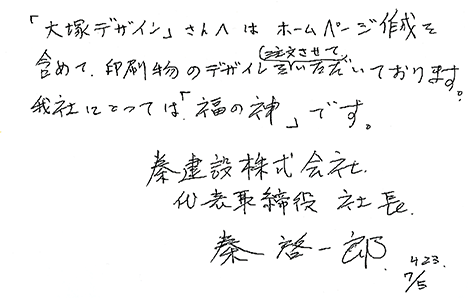 「大塚デザイン」さんへは ホームページ作成を
含めて、印刷物のデザインを注文させていただいております。
我社にとっては「福の神」です。
秦建設株式会社
代表取締役 社長
秦 啓一郎
423
7/5